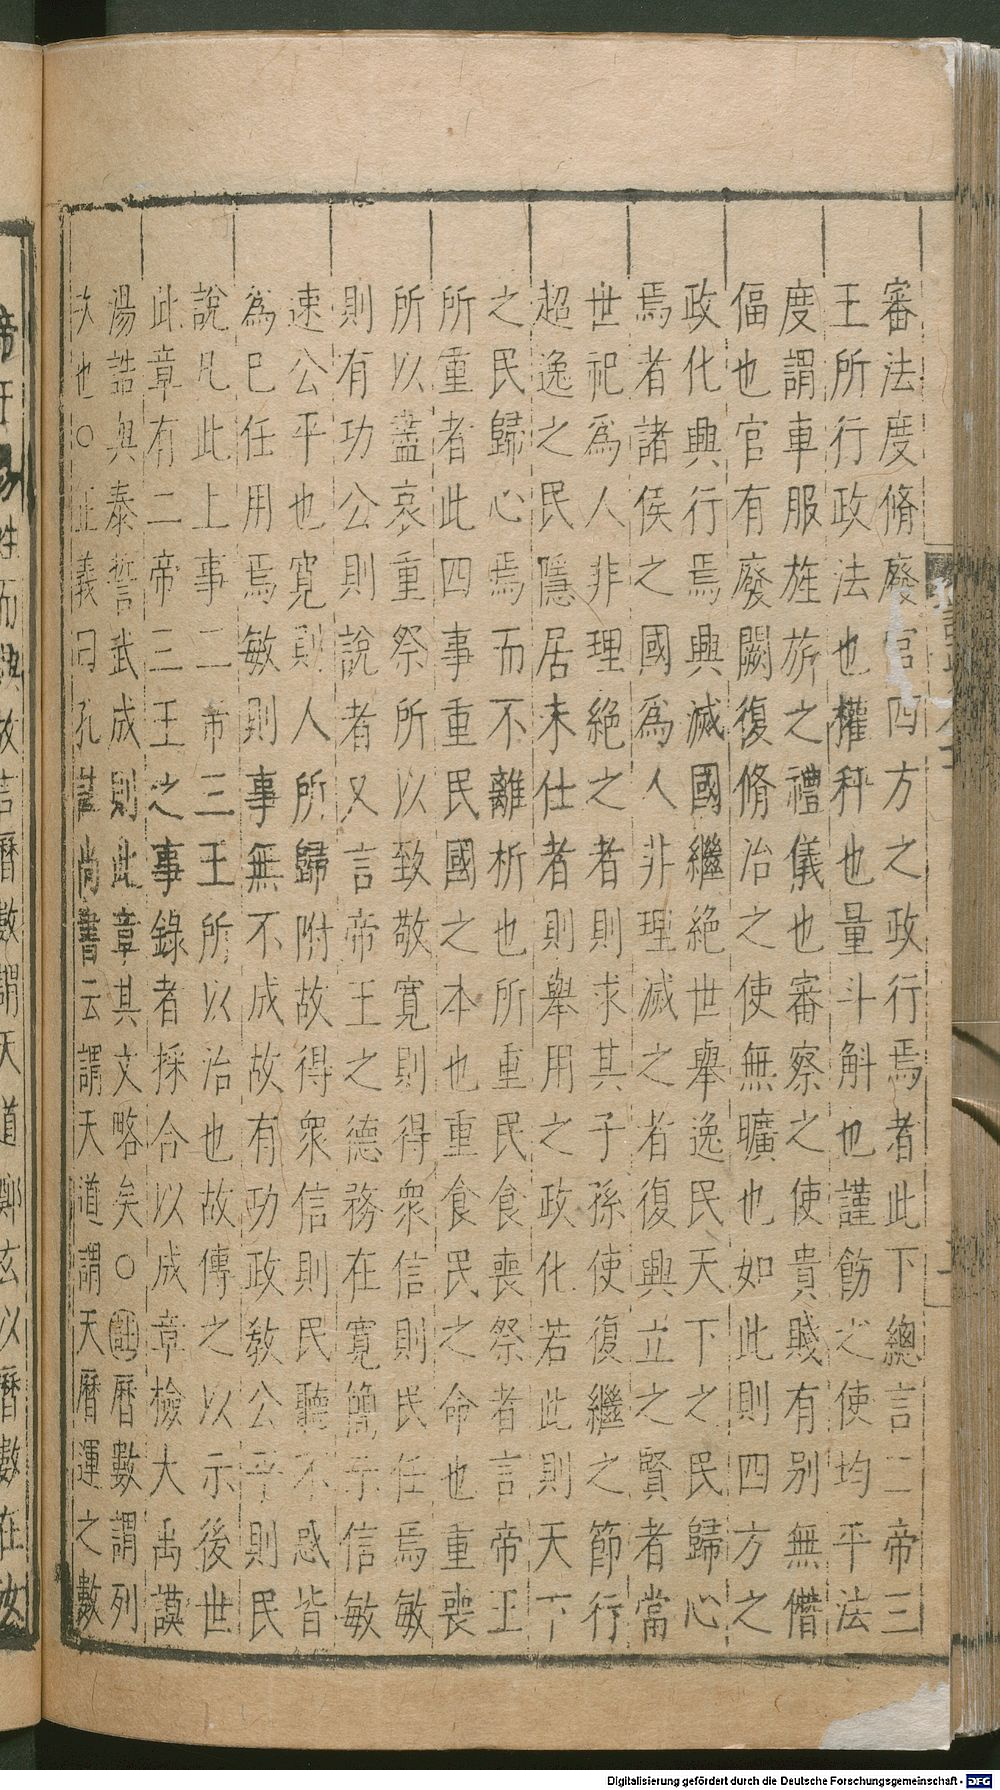 審法度脩廢官四方之政行焉者此下總言二帝三
王所行政法也權秤也量斗斛也謹飭之使均平法
度謂車服旌旂之禮儀也審察之使貴賤有別無僭
偪也官有廢闕復脩治之使無曠也如此則四方之
政化興行焉興滅國繼絶世舉逸民天下之民歸心
焉者諸侯之國為人非理滅之者復興立之賢者當
世祀為人非理絶之者則求其子孫使復繼之節行
超逸之民隱居未仕者則舉用之政化若此則天下
之民歸心焉而不離析也所重民食喪祭者言帝王
所重者此四事重民國之本也重食民之命也重喪
所以盡哀重祭所以致敬寬則得衆信則民任焉敏
則有功公則說者又言帝王之德務在寬簡示信敏
速公平也寬則人所歸附故得衆信則民聽不惑皆
為已任用焉敏則事無不成故有功政敎公平則民
說凡此上事二帝三王所以治也故傳之以示後世
此章有二帝三王之事錄者採合以成章檢大禹謨
湯誥與泰誓武成則此章其文略矣○註曆數謂列
次也○正義曰孔註尚書云謂天道謂天曆運之數
帝王易姓而興故言曆數謂天道鄭玄以曆數在汝
Digitalisierung gefördert durch die Deutsche Forschungsgemeinschaft - DFG